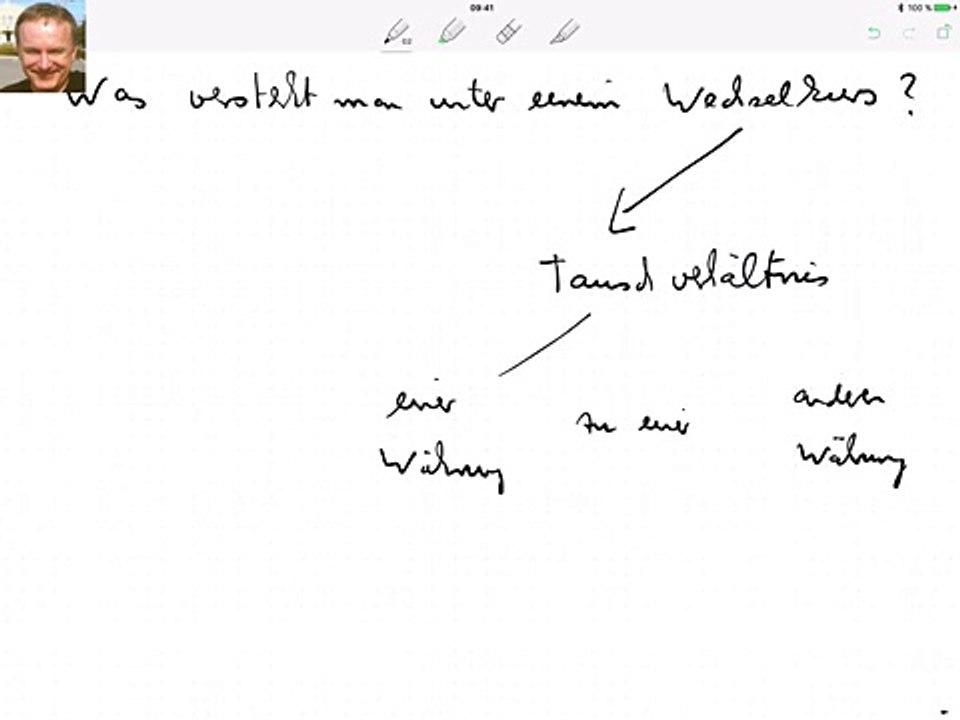 09:41
100 %
02
Was versteht man unter einem Wechselkurs ?
Tauschverhältnis
einer zu einer anderen
Währung Währung